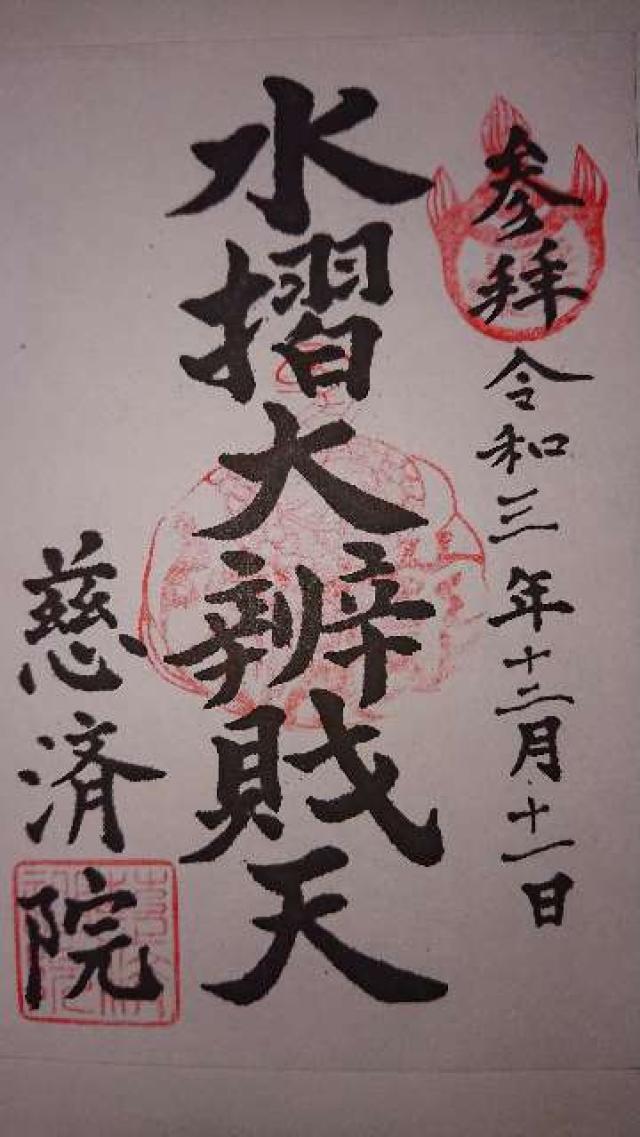 参拝 令和三年十二月十一日
水摺大辨財天
慈済院